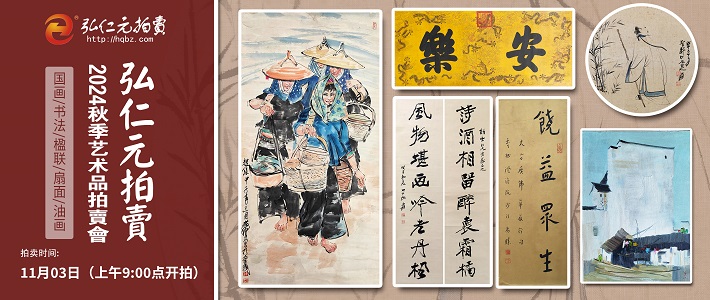 弘仁元拍賣
http://hqbz.com
弘仁元拍賣
2024秋季艺术品拍賣會
国画/书法/楹联/扇面/油画
拍卖时间:
11月03日（上午9:00点开拍）
樂安
詩酒相留醉裏霜橘
風物堪画吟在丹楓
饒益眾生